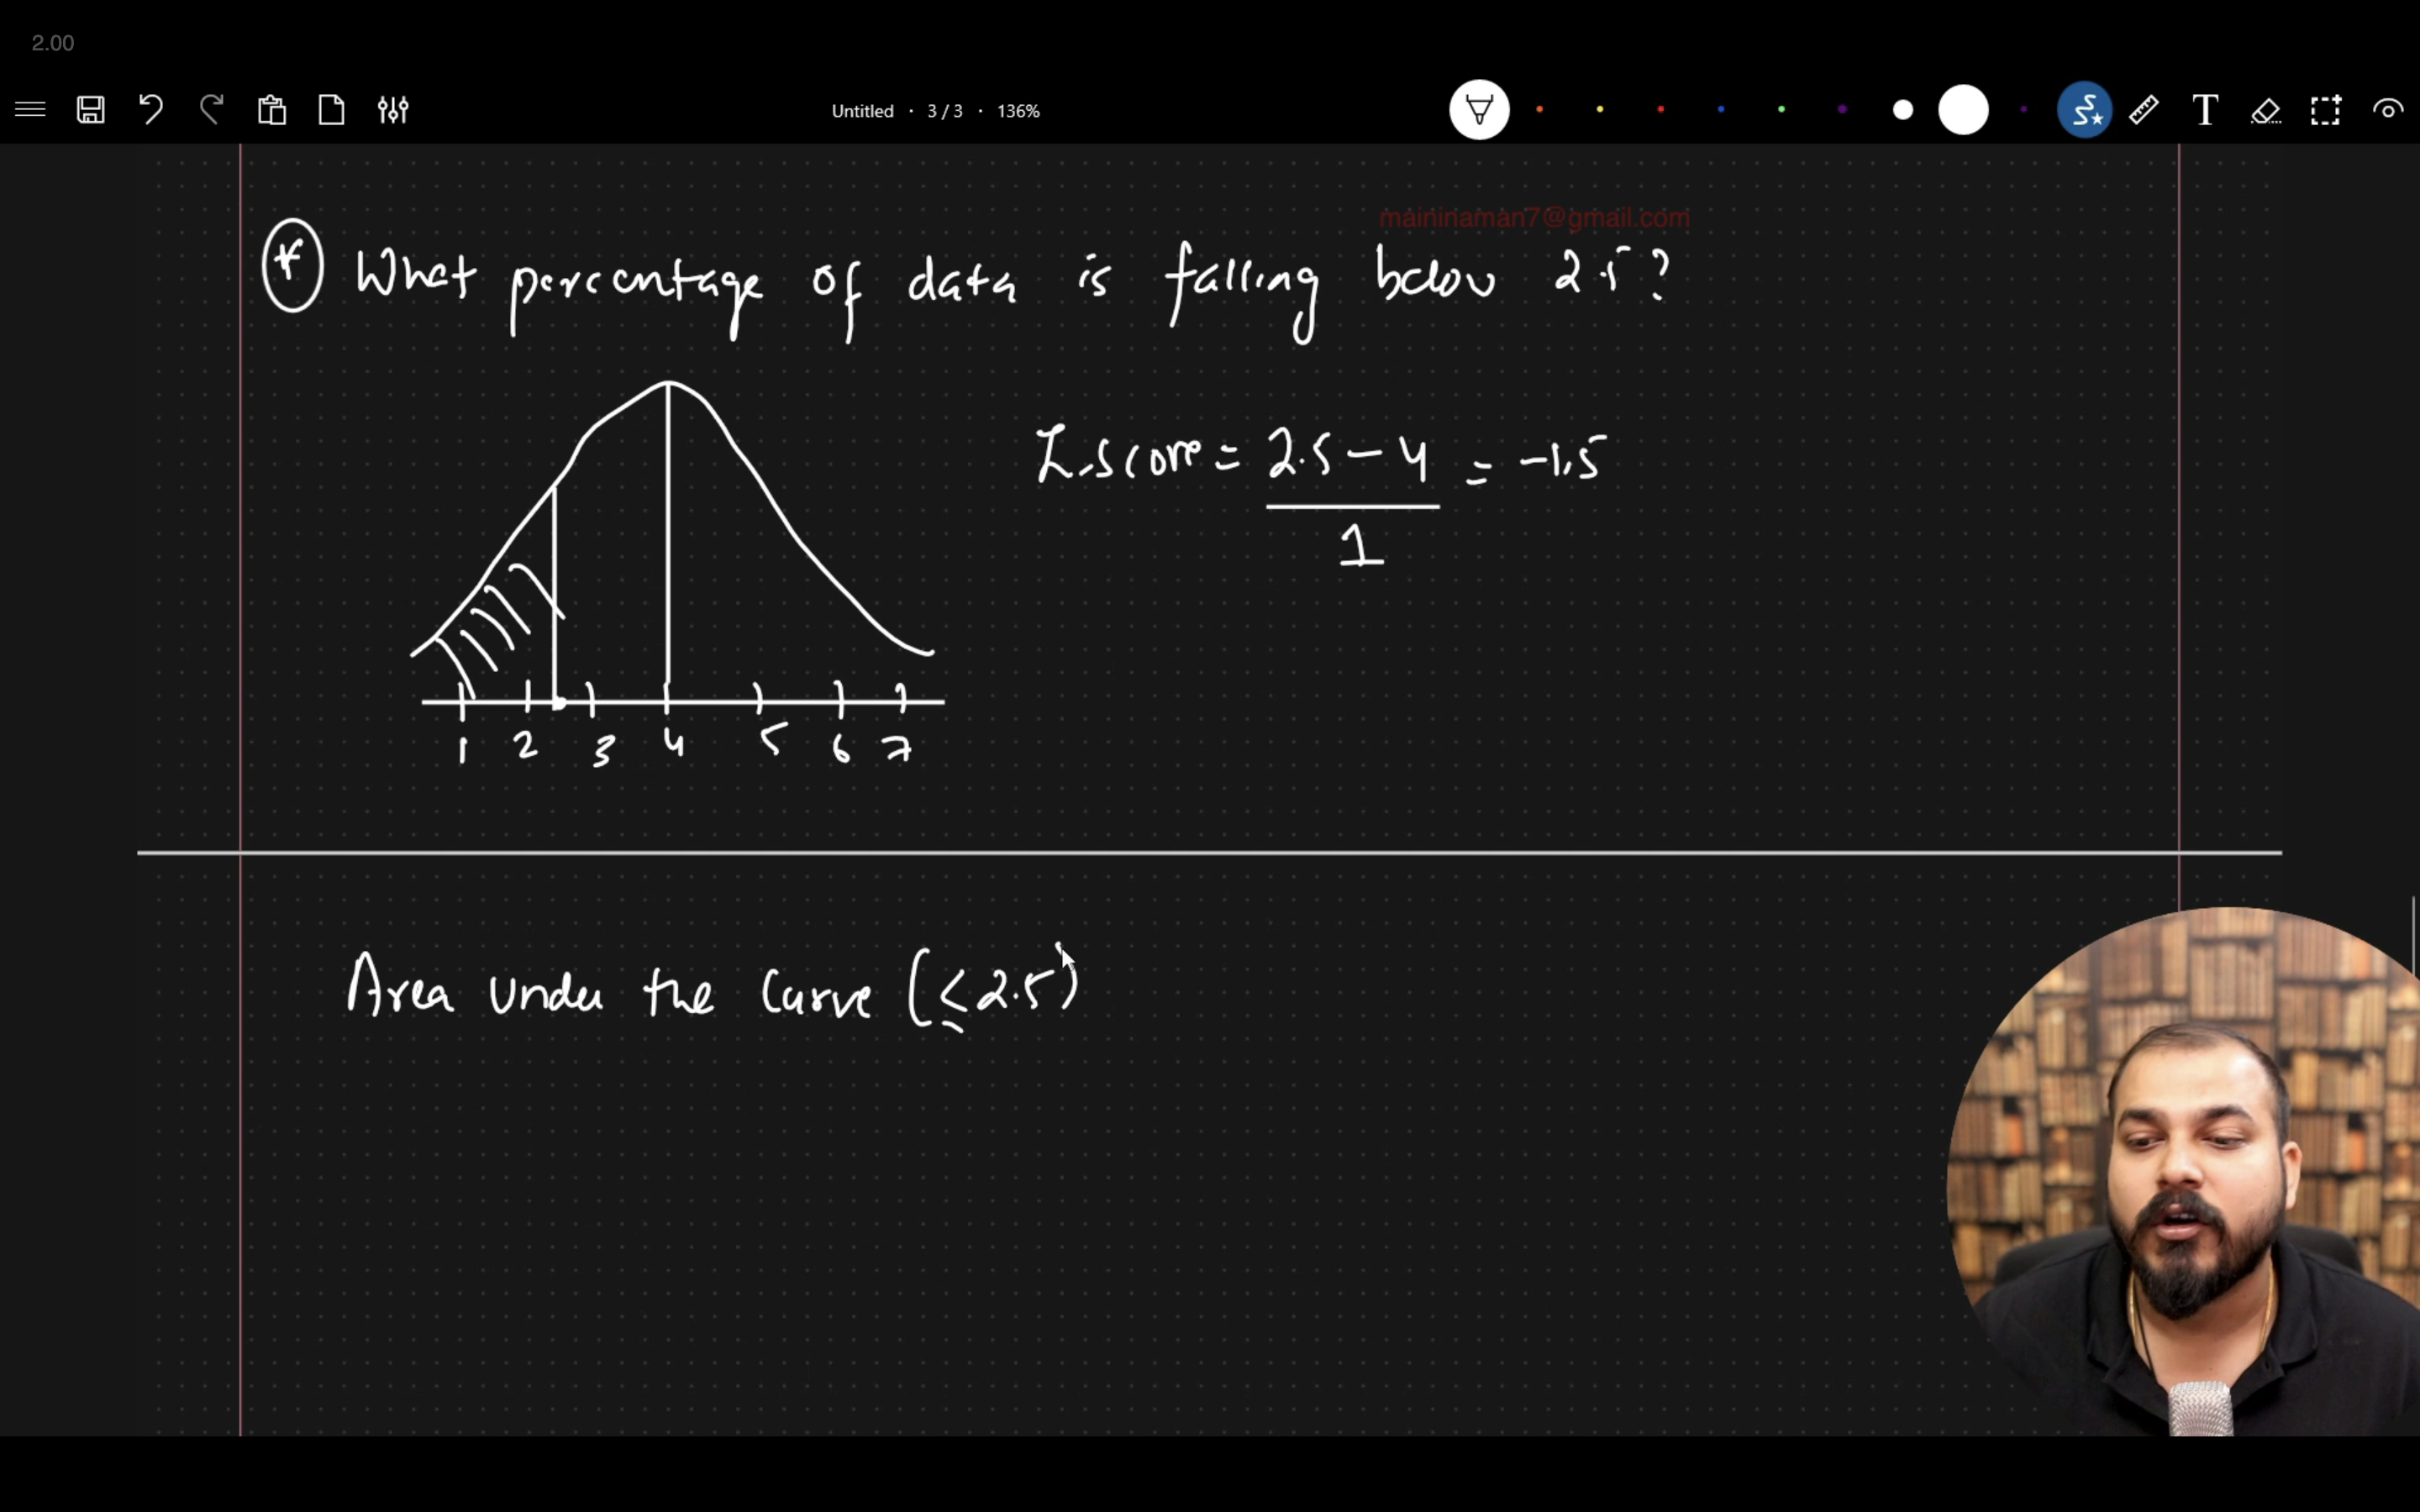 2.00
Untitled · 3 / 3 · 136%
T
maininaman7@gmail.com
* What percentage of data is falling below 2.5?
Z-score = 2.5 - 4 = -1.5
1
1 2 3 4 5 6 7
Area under the curve (≤ 2.5)